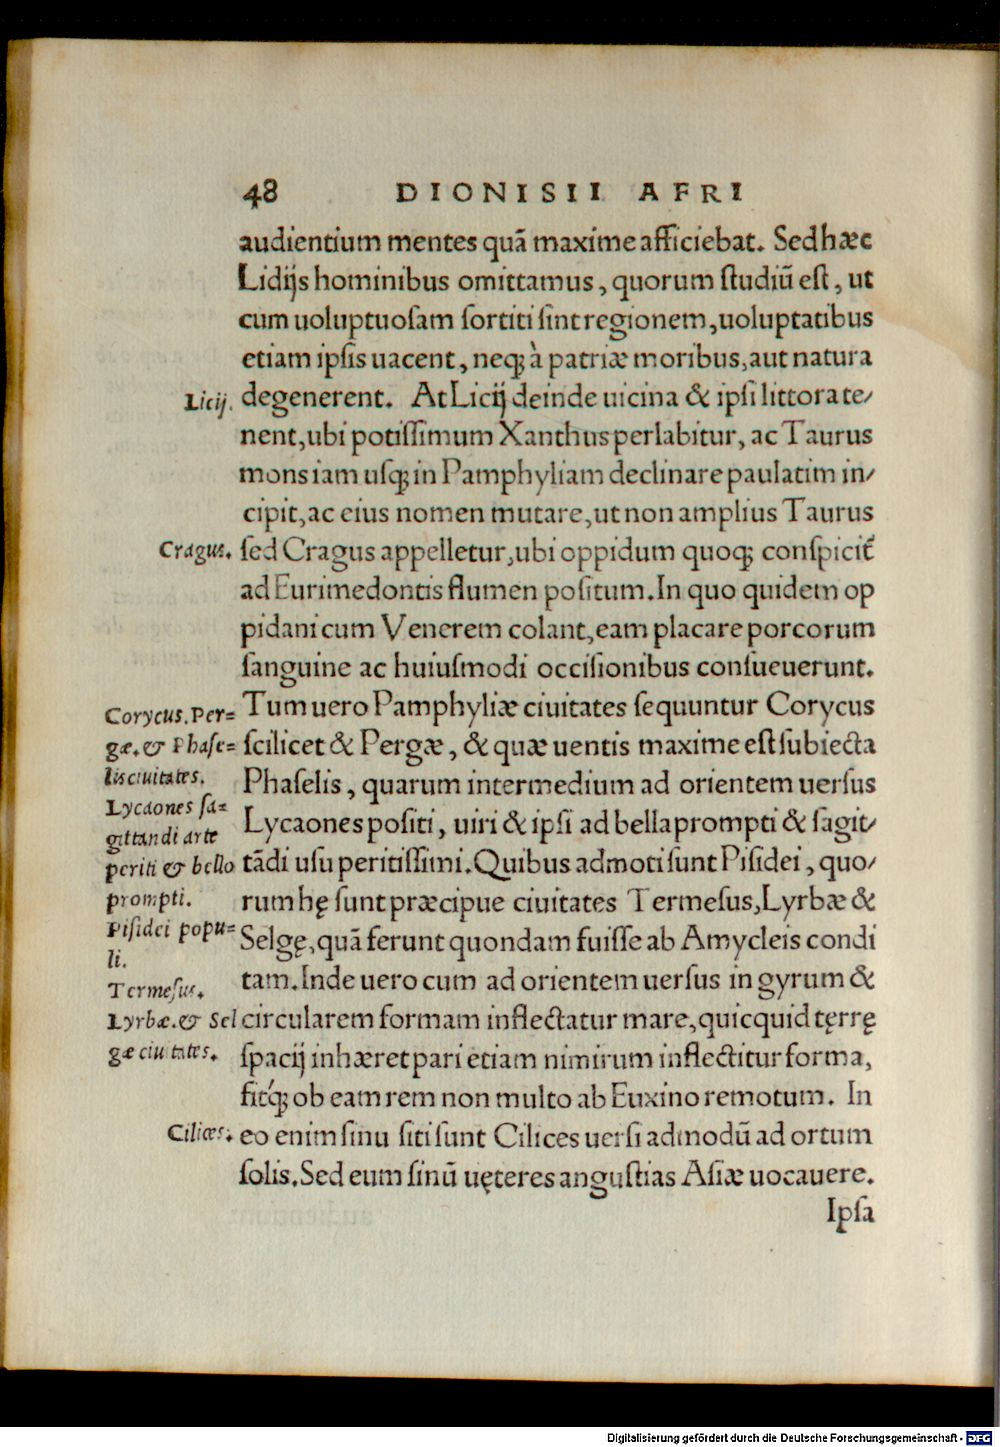 48 DIONISII AFRI
audientium mentes quā maxime afficiebat. Sed hæc
Lidijs hominibus omittamus, quorum ſtudiū eſt, ut
cum uoluptuoſam ſortiti ſint regionem, uoluptatibus
etiam ipſis uacent, neq; à patriæ moribus, aut natura
Licij. degenerent. At Licij deinde uicina & ipſi littora te/
nent, ubi potiſſimum Xanthus perlabitur, ac Taurus
mons iam uſq; in Pamphyliam declinare paulatim in/
cipit, ac eius nomen mutare, ut non amplius Taurus
Cragus. ſed Cragus appelletur, ubi oppidum quoq; conſpicit̃
ad Eurimedontis flumen poſitum. In quo quidem op
pidani cum Venerem colant, eam placare porcorum
ſanguine ac huiuſmodi occiſionibus conſueuerunt.
Tum uero Pamphyliæ ciuitates ſequuntur Corycus
ſcilicet & Pergæ, & quæ uentis maxime eſt ſubiecta
Phaſelis, quarum intermedium ad orientem uerſus
Lycaones poſiti, uiri & ipſi ad bella prompti & ſagit/
tādi uſu peritiſſimi. Quibus admoti ſunt Piſidei, quo/
rum hę ſunt præcipue ciuitates Termeſus, Lyrbæ &
Selgę, quā ferunt quondam fuiſſe ab Amycleis condi
tam. Inde uero cum ad orientem uerſus in gyrum &
circularem formam inflectatur mare, quicquid tęrrę
ſpacij inhæret pari etiam nimirum inflectitur forma,
fitq́; ob eam rem non multo ab Euxino remotum. In
Cilices. eo enim ſinu ſiti ſunt Cilices uerſi admodū ad ortum
ſolis. Sed eum ſinū uęteres anguſtias Aſiæ uocauere.
Ipſa
Corycus. Per=
gæ. & Phaſe=
lis ciuitates.
Lycaones ſa=
gittandi arte
periti & bello
prompti.
Piſidei popu=
li.
Termeſus.
Lyrbæ. & Sel
gæ ciuitates.
Digitalisierung gefördert durch die Deutsche Forschungsgemeinschaft - DFG